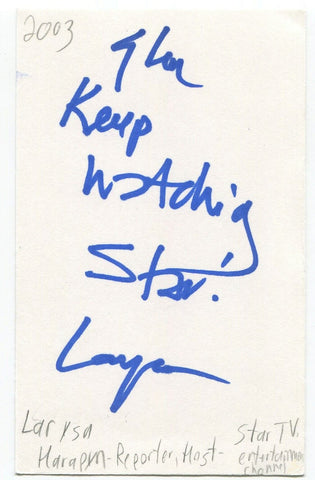 2003
Keep
Watching
Star!
Larysa
Larysa
Harapyn-Reporter, Host-
Star TV.
entertainment
channel